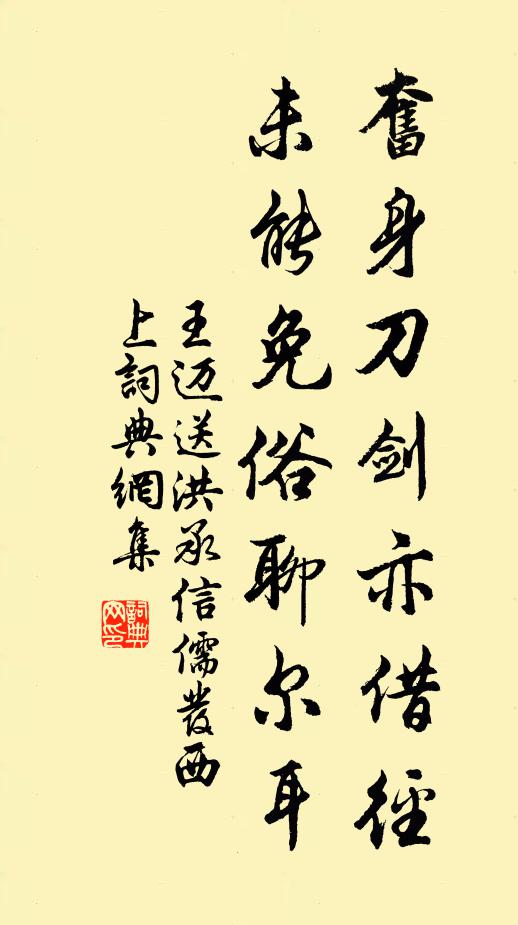 奮身刀劍亦借徑
未能免俗聊尔耳
王迈送洪承信儒發西
上詞典網集
詞典网印